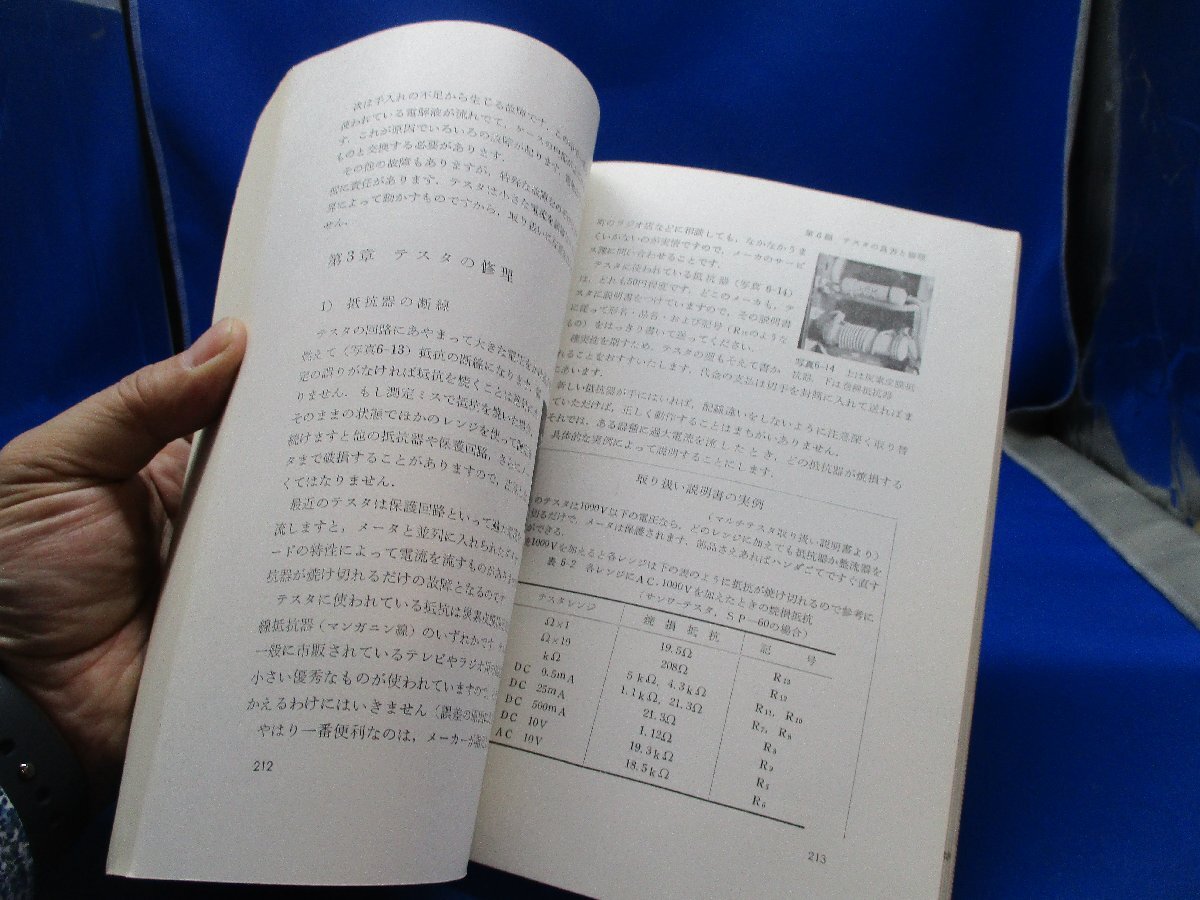 次は手入れの不足から生じる故障です。
使われている電解液が流れでて、ケースの
す。これが原因でいろいろの故障が起ります。
ものと交換する必要があります。
その他の故障もありますが、特殊な故障
に責任があります。テスタは小さな電流
によって動かすものですから、取り扱いは
せん。
第3章 テスタの修理
1) 抵抗器の断線
テスタの回路にあやまって大きな電
燃えて(写真6-13)抵抗の断線になります。
定の誤りがなければ抵抗を焼くことは
りません。もし測定ミスで抵抗を焼いた
そのままの状態でほかのレンジを使って
続けますと他の抵抗器や保護回路、さらに
タまで破損することがありますので、
くてはなりません。
最近のテスタは保護回路といって
流しますと、メータと並列に入れられた
ードの特性によって電流を流すものが
抗器が焼け切れるだけの故障となるので
テスタに使われている抵抗は炭素皮膜
線抵抗器(マンガニン線)のいずれかです。
一般に市販されているテレビやラジオ
小さい優秀なものが使われていますので、
かえるわけにはいきません(誤差の
やはり一番便利なのは、メーカー
212
第6編 テスタの良否と修理
町のラジオ店などに相談しても、なかなかうま
くいかないのが実情ですので、メーカのサービ
ス課に問い合わせることです。
テスタに使われている抵抗器(写真 6-14)
は、どれも50円程度です。どこのメーカも、テ
スタに説明書をつけていますので、その説明書
に従って形名・品名・および記号(R₁₅のような
もの)をはっきり書いて送ってください。
確実性を期すため、テスタの図もそえて書か
れることをおすすいたします。代金の支払は切手を封筒に入れて送ればま
にあいます。
写真6-14 上は炭素皮膜抵
抗器、下は巻線抵抗器
新しい抵抗器が手にはいれば、配線違いをしないように注意深く取り替
ていただけば、正しく動作することはまちがいありません。
それでは、ある器種に過大電流を流したとき、どの抵抗器が焼損する
具体的な実例によって説明することにします。
取り扱い説明書の実例
(マルチテスタ取り扱い説明書より)
のテスタは1000V以下の電圧なら、どのレンジに加えても抵抗器か整流器を
切るだけで、メータは保護されます。部品さえあればハンダごてですぐ直す
ができる。
1000Vを加えると各レンジは下の表のように抵抗が焼け切れるので参考に
表 6-2 各レンジにAC. 1000Vを加えたときの焼損抵抗
(サンワーテスタ、SP-60の場合)
テスタレンジ 焼損抵抗 記号
Ω×1 19.5Ω R₁₃
Ω×10 208Ω R₁₂
kΩ 5 kΩ, 4.3kΩ R₁₁, R₁₀
DC 0.5mA 1.1kΩ, 21.3Ω R₇, R₈
DC 25mA 21.3Ω R₈
DC 500mA 1.12Ω R₉
DC 10V 19.3kΩ R₄
AC 10V 18.5kΩ R₅
213